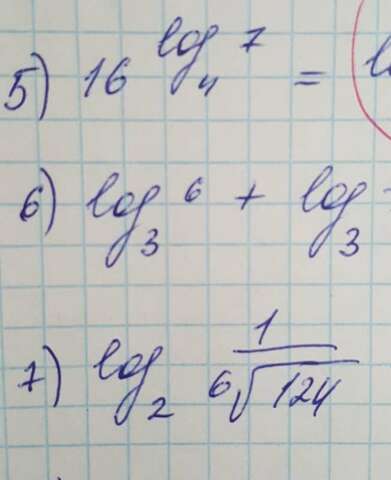 5) 16^log₄7 =
6) log₃6 + log₃
7) log₂ 1/⁶√124